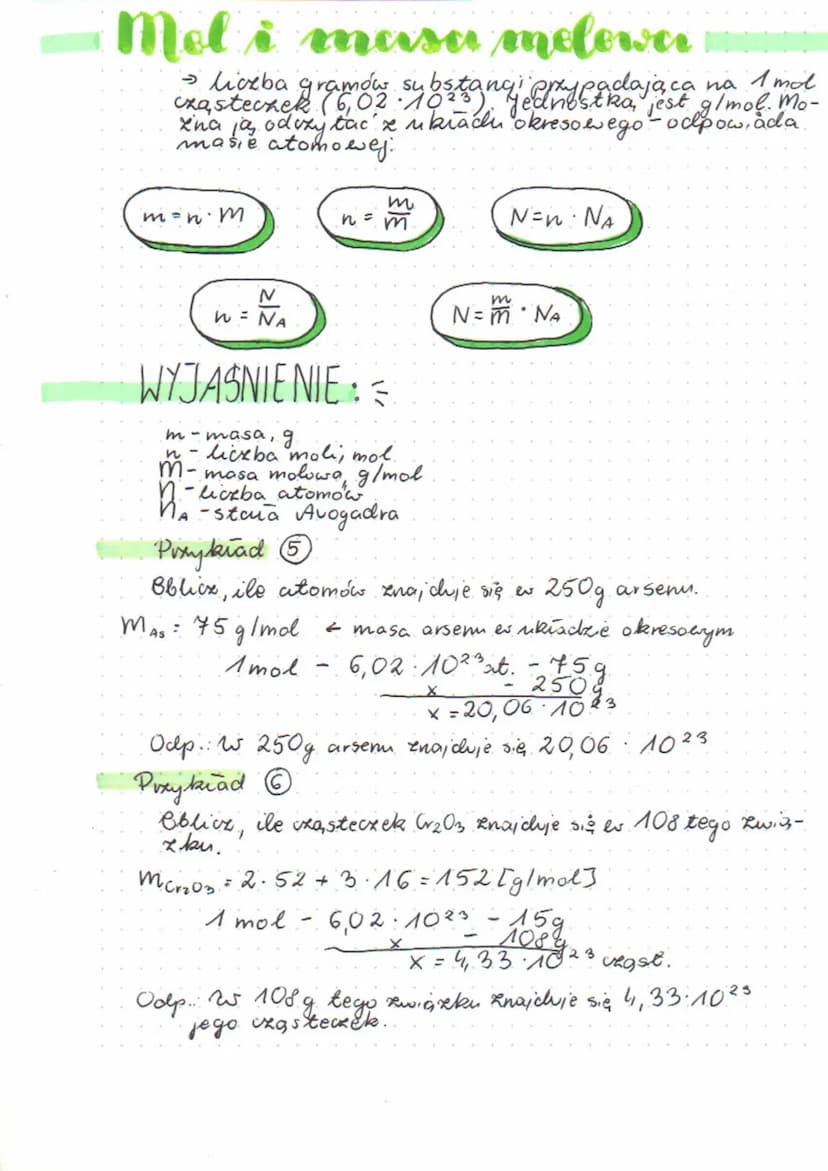 Mol i masa molowa
→ liczba gramów substancji przypadająca na 1 mol
cząsteczek (6,02 · 10²³). Jednostką jest g/mol. Mo-
żna ją odczytać z układu okresowego - odpowiada
masie atomowej.
m = n · M n = m/M N = n · NA
n = N/NA N = m/M · NA
WYJAŚNIENIE:
m - masa, g
n - liczba moli, mol
M - masa molowa, g/mol
N - liczba atomów
NA - stała Avogadra
Przykład 5
Oblicz, ile atomów znajduje się w 250g arsenu.
MAs = 75 g/mol ← masa arsenu w układzie okresowym
1 mol - 6,02 · 10²³ at. - 75g
x - 250g
x = 20,06 · 10²³
Odp.: W 250g arsenu znajduje się 20,06 · 10²³
Przykład 6
Oblicz, ile cząsteczek Cr₂O₃ znajduje się w 108 tego zwią-
zku.
MCr₂O₃ = 2 · 52 + 3 · 16 = 152 [g/mol]
1 mol - 6,02 · 10²³ - 15g
x - 108g
x = 4,33 · 10²³ cząst.
Odp.: W 108g tego związku znajduje się 4,33 · 10²³
jego cząsteczek.